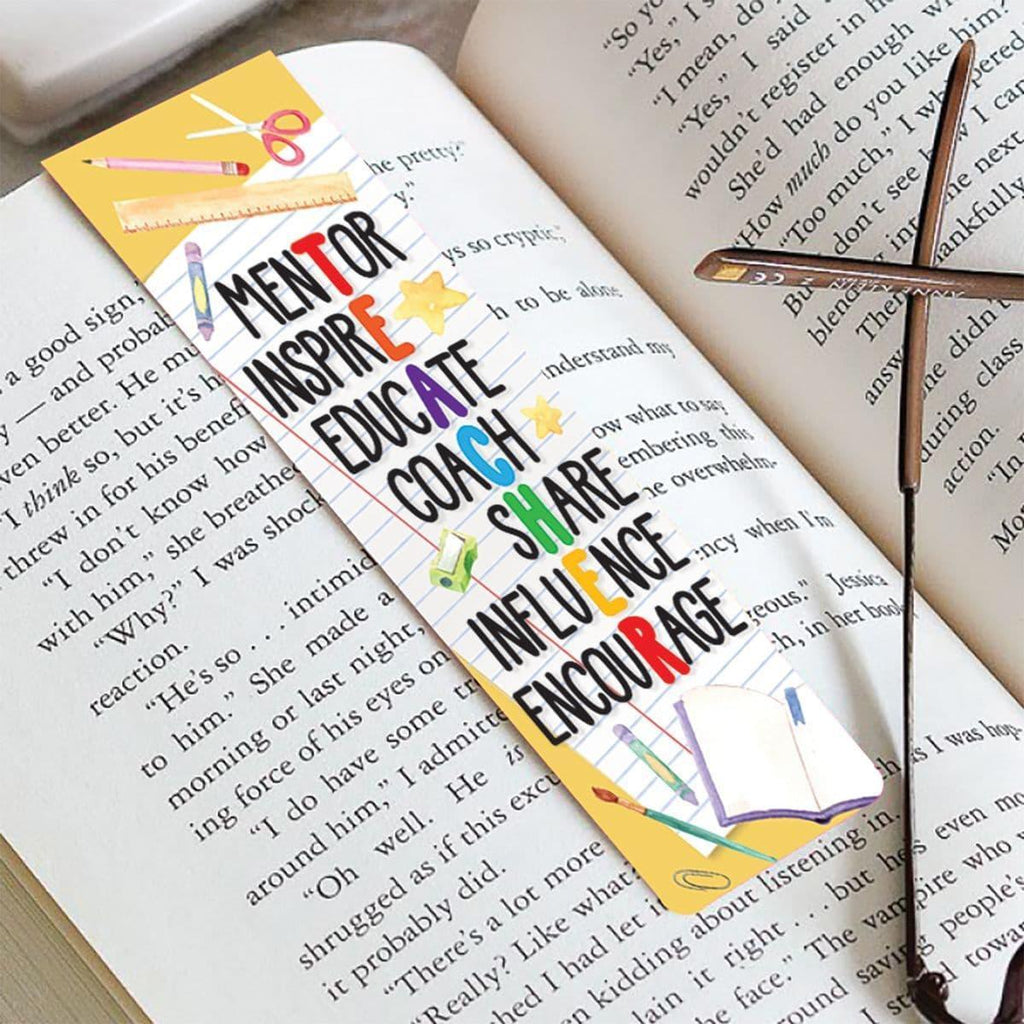 MENTOR
INSPIRE
EDUCATE
COACH
SHARE
INFLUENCE
ENCOURAGE
a good sign,
— and probab
ven better. He mu
"I think so, but it's h
threw in for his benef
"I don't know how
with him," she breathe
"Why?" I was shock
reaction.
"He's so . . . intimid
to him." She made a
morning or last night,
ing force of his eyes on
"I do have some tr
around him," I admitte
"Oh well. He is
shrugged as if this excu
it probably did.
"There's a lot more
"Really? Like what?
hed I had let i
en kidding about listening in.
lain it right . . . but he's even mo
he face." The vampire who w
round saving people's
d towar
he pretty?"
y."
ys so cryptic,"
h to be alone
nderstand my
ow what to say
embering this
he overwhelm-
ncy when I'm
geous." Jessica
h, in her book
s I was hop-
"So yo
"Yes," I s
"I mean, do
"Yes," I said
wouldn't register in h
She'd had enough wi
"How much do you like him?"
"Too much," I whispered
don't see how I can
the next
hankfully
But
blend
Then
she didn't
answ
during class
action.
"In
Mo